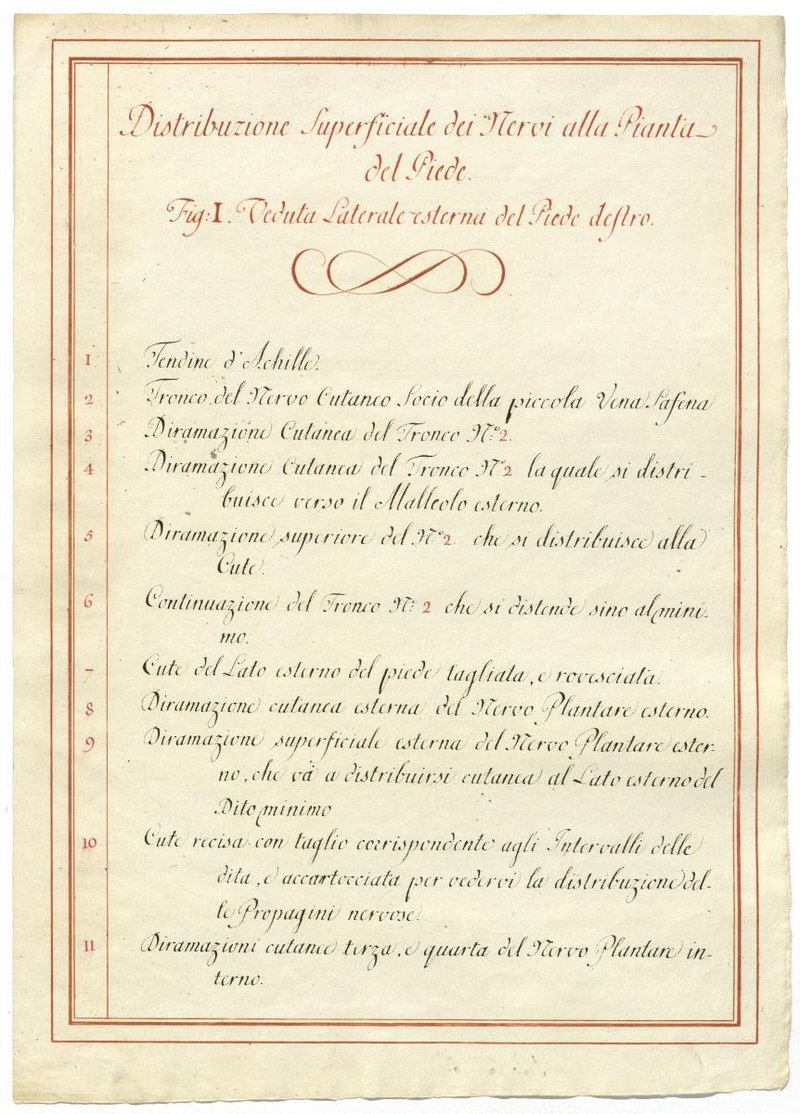 Distribuzione Superficiale dei Nervi alla Pianta
del Piede.
Fig: I. Veduta Laterale esterna del Piede destro.
1 Tendine d'Achille.
2 Tronco del Nervo Cutaneo Socio della piccola Vena Safena
3 Diramazione Cutanea del Tronco N.º 2.
4 Diramazione Cutanea del Tronco N.º 2 la quale si distri-
buisce verso il Malleolo esterno.
5 Diramazione superiore del N.º 2. che si distribuisce alla
Cute.
6 Continuazione del Tronco N.º 2 che si distende sino al mini-
mo.
7 Cute del Lato esterno del piede tagliata, e rovesciata.
8 Diramazione cutanea esterna del Nervo Plantare esterno.
9 Diramazione superficiale esterna del Nervo Plantare ester-
no, che và a distribuirsi cutanea al Lato esterno del
Dito minimo
10 Cute recisa con taglio corrispondente agli Intervalli delle
dita, e accartocciata per vedervi la distribuzione del-
le Propagini nervose.
11 Diramazioni cutanee terza, e quarta del Nervo Plantare in-
terno.